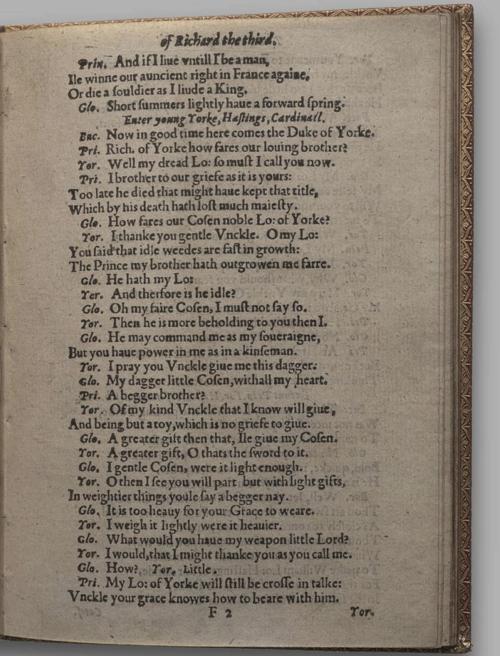 of Richard the third.
Prin. And if I liue vntill I be a man,
Ile winne our auncient right in France againe,
Or die a souldier as I liude a King.
Glo. Short summers lightly haue a forward spring.
Enter young Yorke, Hastings, Cardinall.
Buc. Now in good time here comes the Duke of Yorke.
Pri. Rich. of Yorke how fares our louing brother?
Yor. Well my dread Lo: so must I call you now.
Pri. I brother to our griefe as it is yours:
Too late he died that might haue kept that title,
Which by his death hath lost much maiesty.
Glo. How fares our Cosen noble Lo: of Yorke?
Yor. I thanke you gentle Vnckle. O my Lo:
You said that idle weedes are fast in growth:
The Prince my brother hath outgrowen me farre.
Glo. He hath my Lo:
Yor. And therfore is he idle?
Glo. Oh my faire Cosen, I must not say so.
Yor. Then he is more beholding to you then I.
Glo. He may command me as my soueraigne,
But you haue power in me as in a kinseman.
Yor. I pray you Vnckle giue me this dagger.
Glo. My dagger little Cosen, withall my heart.
Pri. A begger brother?
Yor. Of my kind Vnckle that I know will giue,
And being but a toy, which is no griefe to giue.
Glo. A greater gift then that, Ile giue my Cosen.
Yor. A greater gift, O thats the sword to it.
Glo. I gentle Cosen, were it light enough.
Yor. O then I see you will part but with light gifts,
In weightier things youle say a begger nay.
Glo. It is too heauy for your Grace to weare.
Yor. I weigh it lightly were it heauier.
Glo. What would you haue my weapon little Lord?
Yor. I would, that I might thanke you as you call me.
Glo. How? Yor. Little.
Pri. My Lo: of Yorke will still be crosse in talke:
Vnckle your grace knowes how to beare with him.
F 2 Yor.